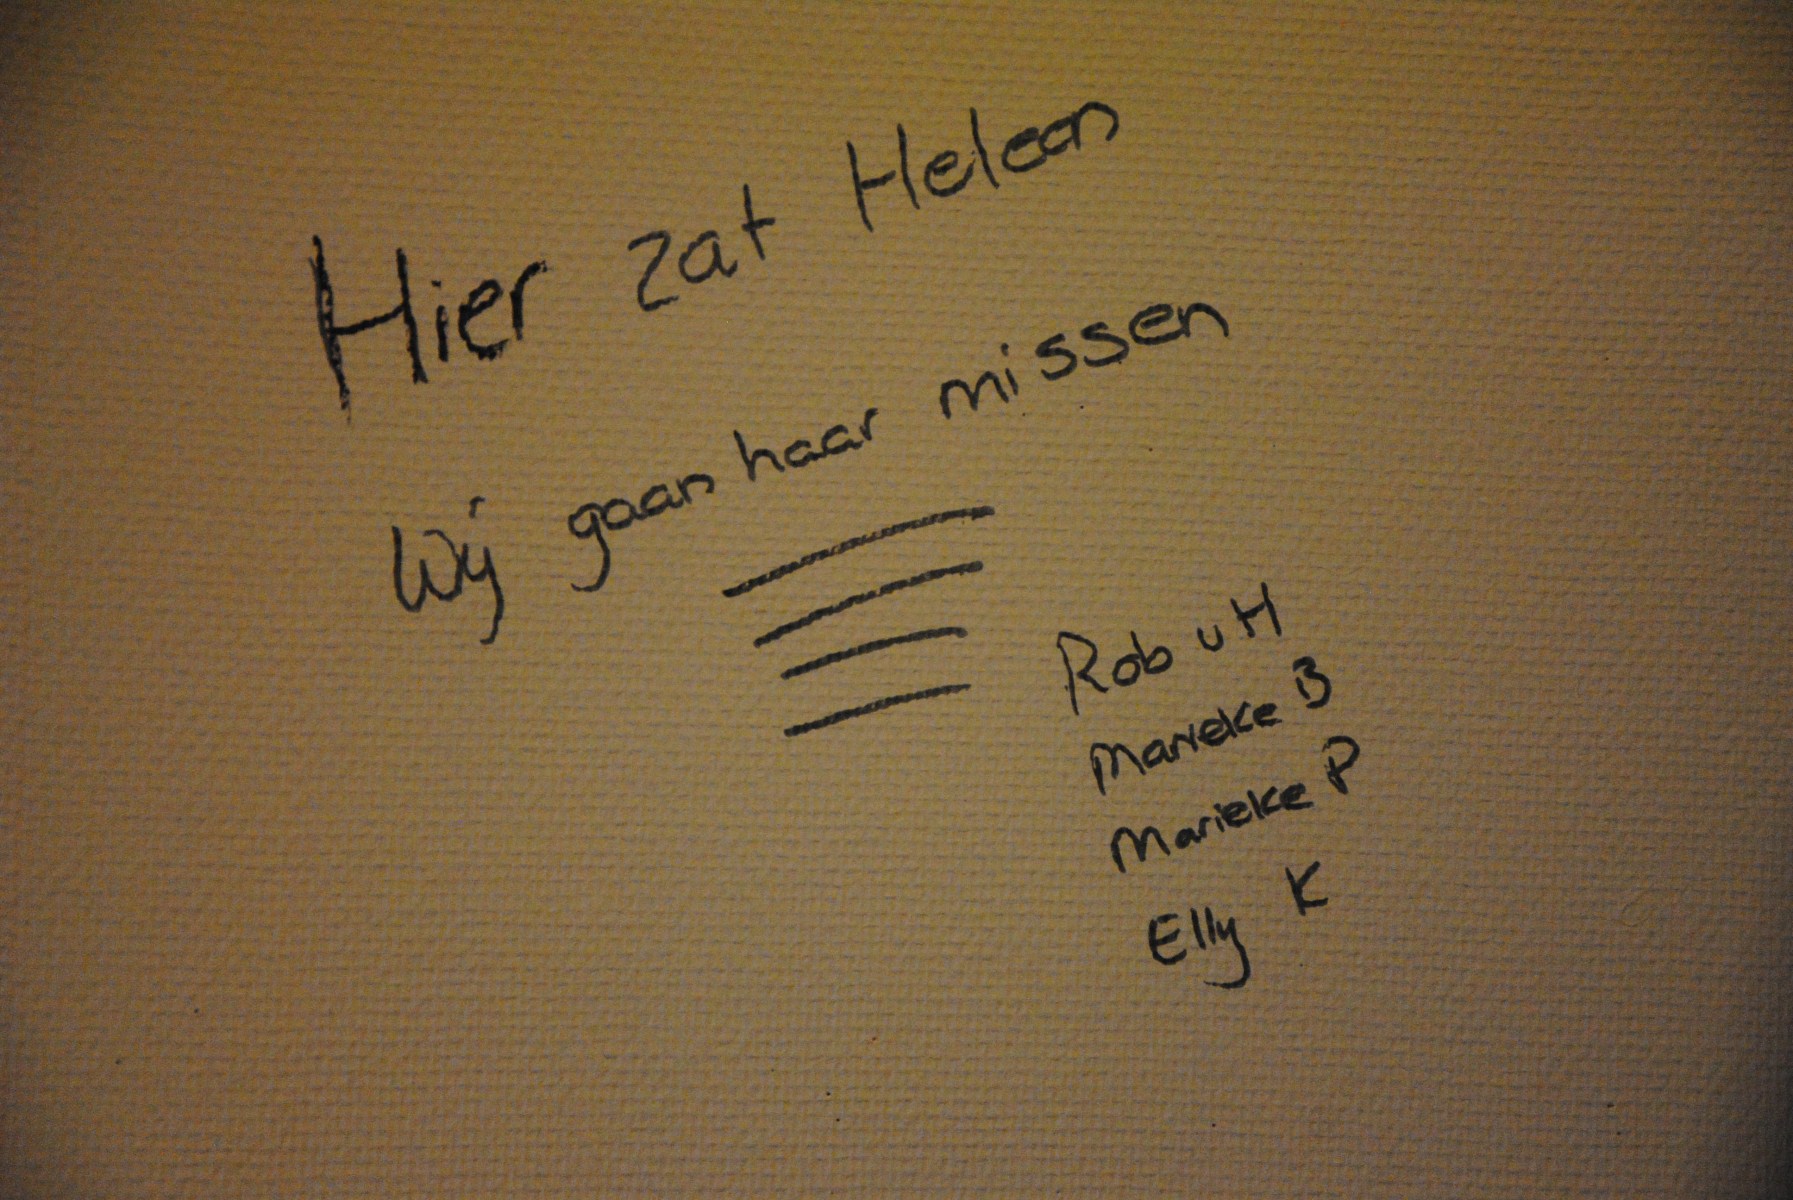 Hier zat Heleen
Wij gaan haar missen
Rob v H
Marieke B
Marieke P
Elly K